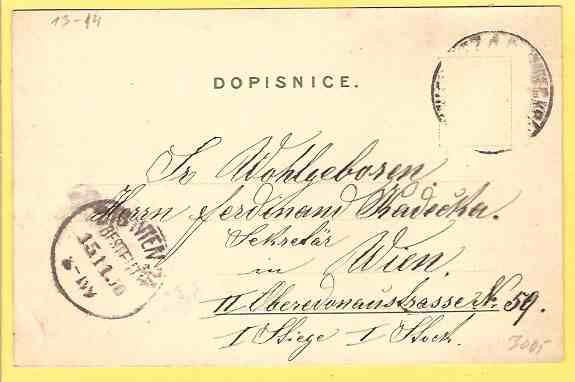 13-14
DOPISNICE.
Sr Wohlgeboren
Herrn Ferdinand Radečka.
Sekretär
in Wien.
II Oberedonaustrasse Nr. 59.
I Stiege I Stock.
WIEN
BESTELLT
15.11.
3005